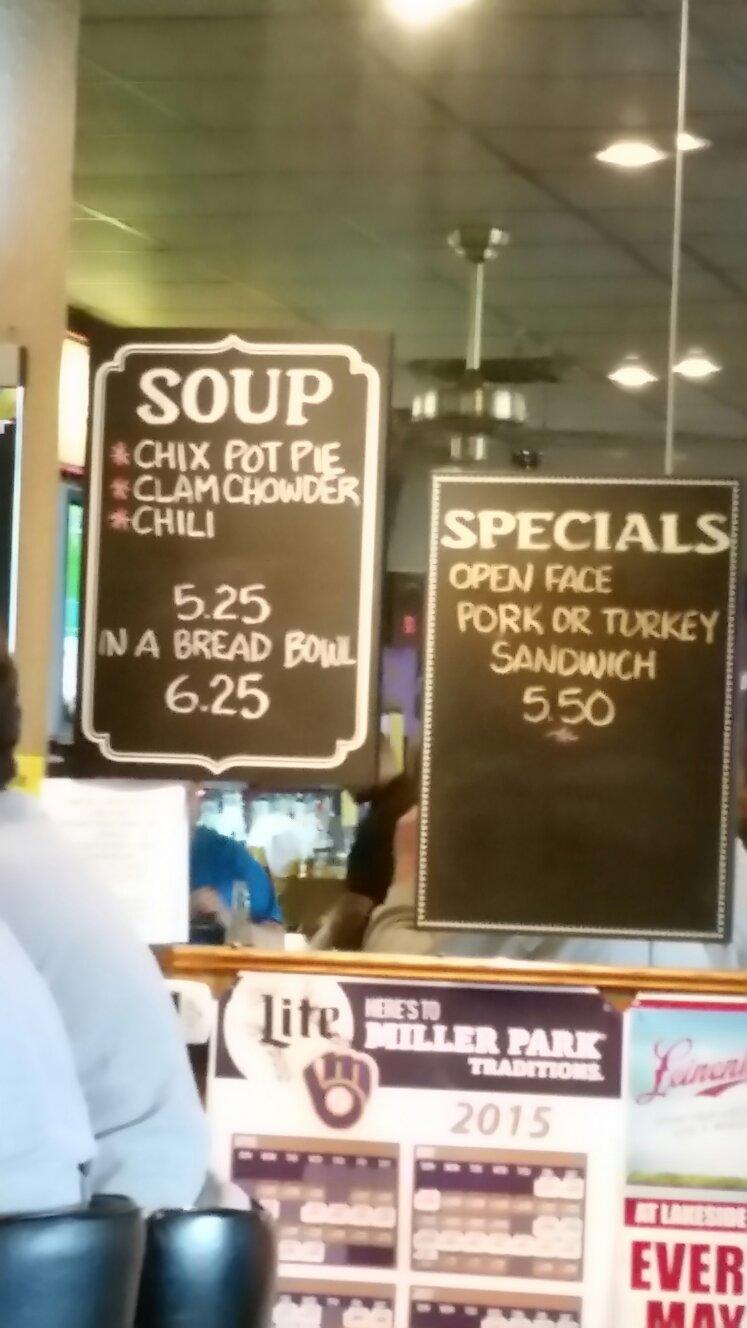 SOUP
*CHIX POT PIE
*CLAM CHOWDER
*CHILI
5.25
IN A BREAD BOWL
6.25
SPECIALS
OPEN FACE
PORK OR TURKEY
SANDWICH
5.50
Lite
HERE'S TO
MILLER PARK
TRADITIONS.
2015
AT LAKESIDE
EVER
MAY